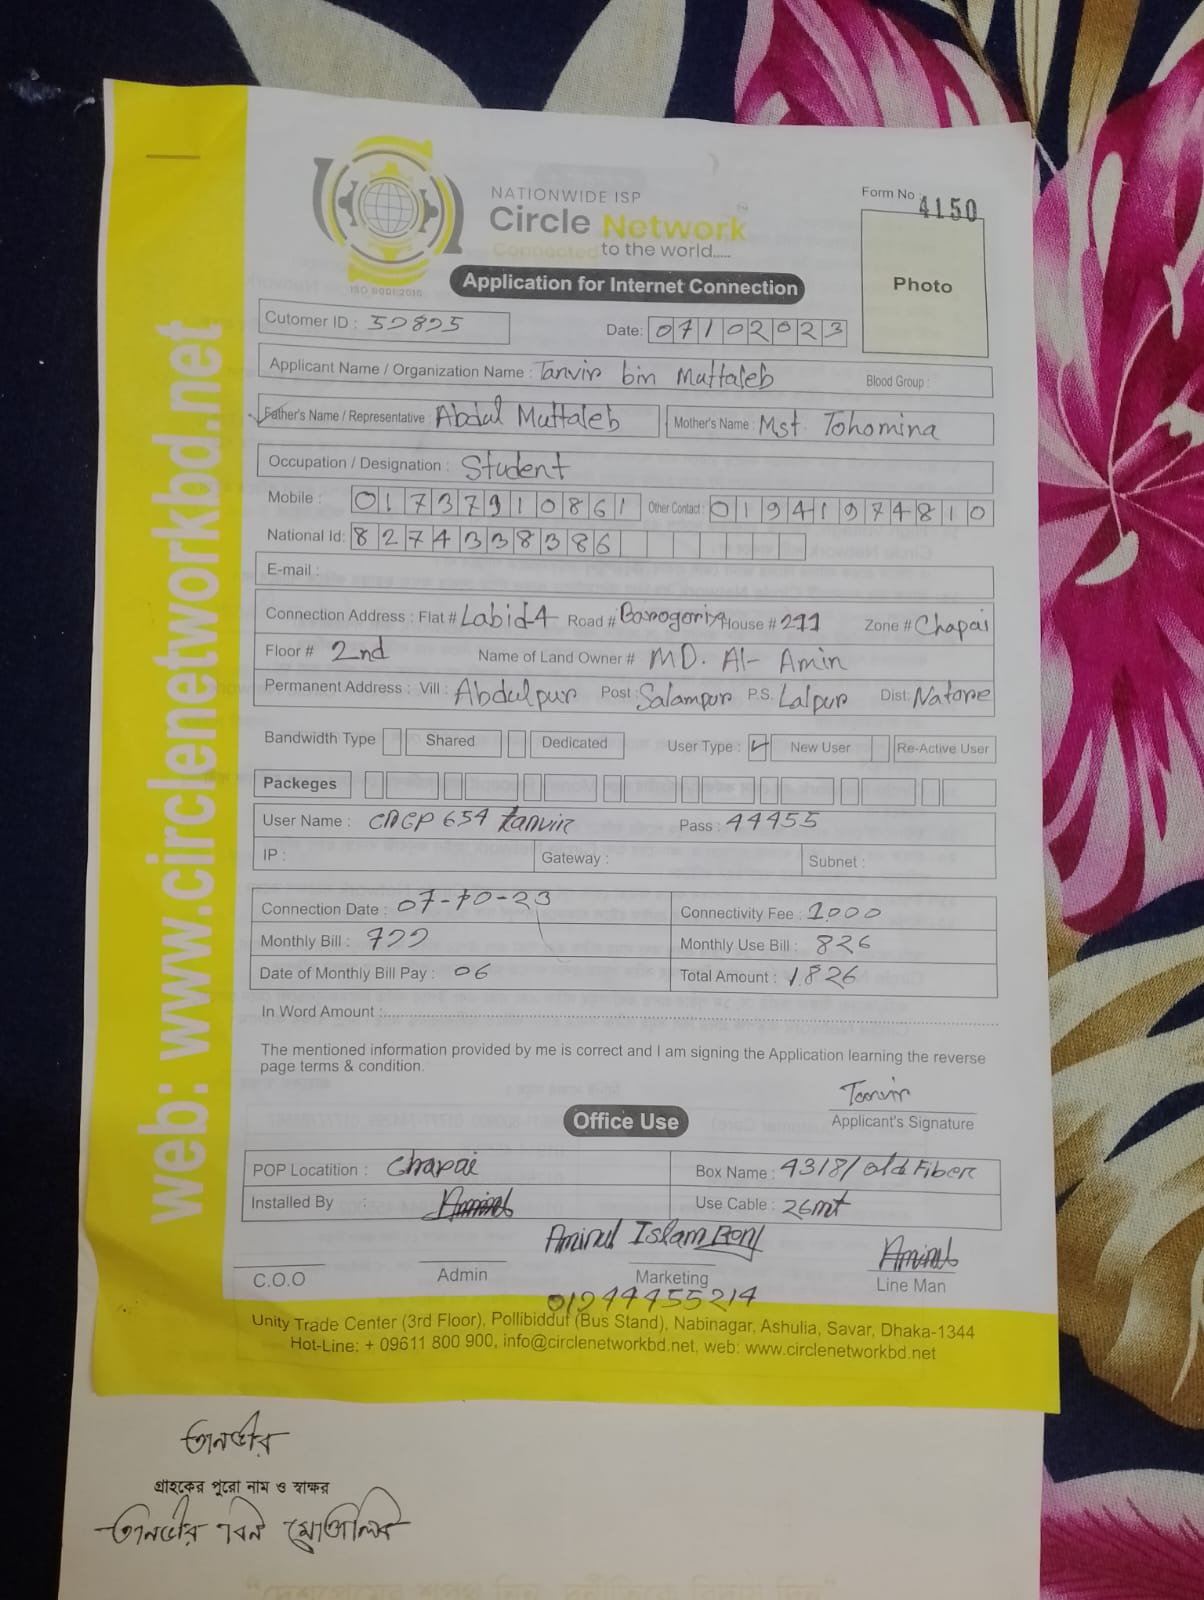 web: www.circlenetworkbd.net
NATIONWIDE ISP
Circle Network
Connected to the world.....
ISO 9001:2015
Form No 4150
Photo
Application for Internet Connection
Cutomer ID :
Date: 07102023
Applicant Name / Organization Name : Tanvir bin Muttaleb Blood Group :
Father's Name / Representative : Abdul Muttaleb Mother's Name : Mst. Tohomina
Occupation / Designation : Student
Mobile : 01737910861 Other Contact : 01941974810
National Id: 8274338386
E-mail :
Connection Address : Flat # Labid-4 Road # Barogoriya House # 211 Zone # Chapai
Floor # 2nd Name of Land Owner # MD. Al- Amin
Permanent Address : Vill : Abdulpur Post : Salampur P.S. Lalpur Dist: Natore
Bandwidth Type Shared Dedicated User Type : ✓ New User Re-Active User
Packeges
User Name : tanvir Pass : 44455
IP : Gateway : Subnet :
Connection Date : 07-10-23 Connectivity Fee : 1000
Monthly Bill : Monthly Use Bill : 826
Date of Monthly Bill Pay : 06 Total Amount : 1826
In Word Amount :
The mentioned information provided by me is correct and I am signing the Application learning the reverse
page terms & condition.
Tanvir
Applicant's Signature
Office Use
POP Locatition : Chapai Box Name : 4318/old Fiber
Installed By : Aminul Use Cable : 26mt
Aminul Islam Aminul
C.O.O Admin Marketing Line Man
Unity Trade Center (3rd Floor), Pollibiddut (Bus Stand), Nabinagar, Ashulia, Savar, Dhaka-1344
Hot-Line: + 09611 800 900, info@circlenetworkbd.net, web: www.circlenetworkbd.net
তানভীর
গ্রাহকের পুরো নাম ও স্বাক্ষর
তানভীর বিন মোত্তালিব